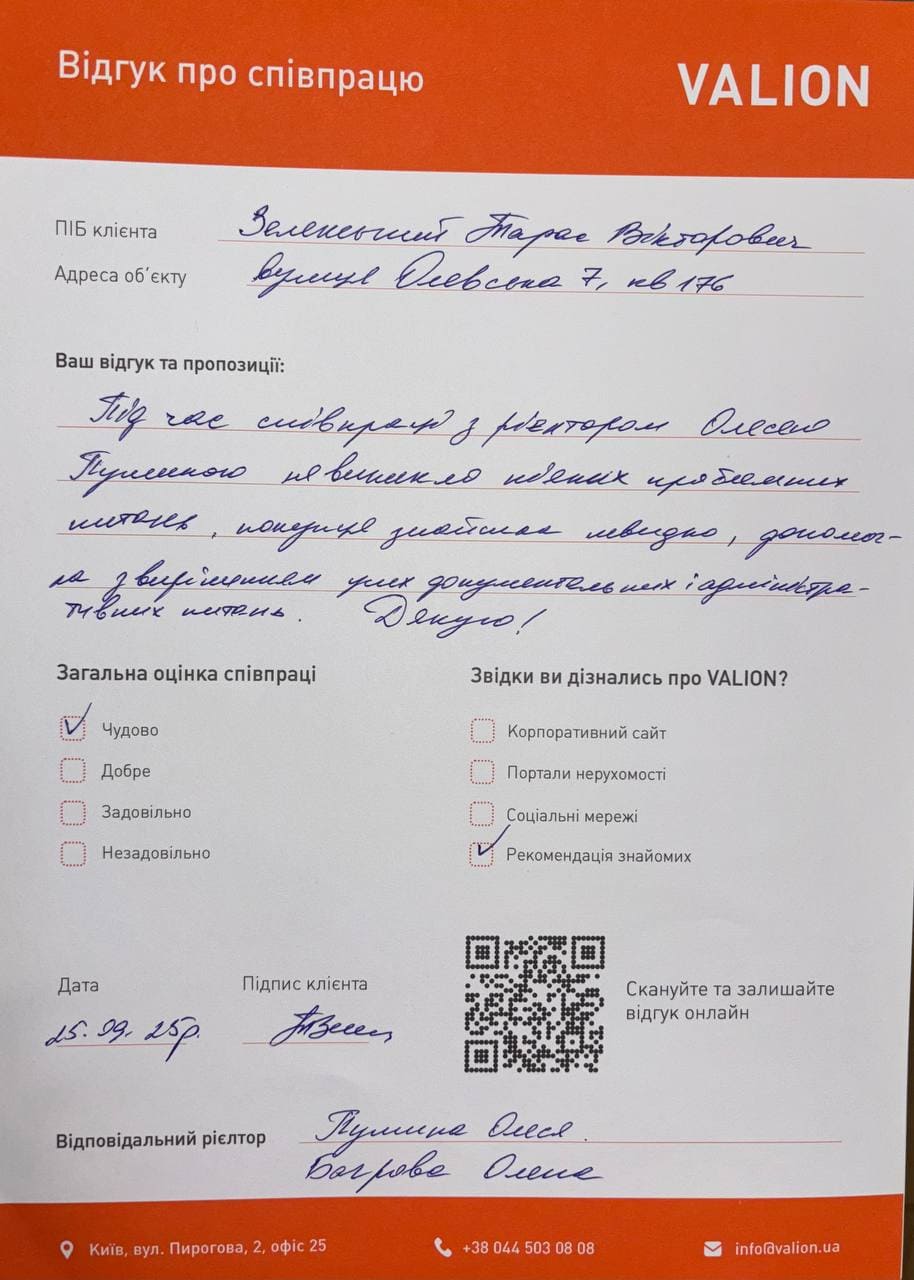 Відгук про співпрацю
VALION
ПІБ клієнта Зеленський Тарас Вікторович
Адреса об’єкту вулиця Олевська 7, кв 176
Ваш відгук та пропозиції:
Під час співпраці з рієлтором Олесею
не виникло ніяких проблемних
питань, покупця знайшла швидко, допомог-
ла з вирішенням усіх документальних і адміністра-
тивних питань. Дякую!
Загальна оцінка співпраці
Чудово
Добре
Задовільно
Незадовільно
Звідки ви дізнались про VALION?
Корпоративний сайт
Портали нерухомості
Соціальні мережі
Рекомендація знайомих
Дата 25.09.25р.
Підпис клієнта
Скануйте та залишайте
відгук онлайн
Відповідальний рієлтор Олеся
Багрова Олена
Київ, вул. Пирогова, 2, офіс 25
+38 044 503 08 08
info@valion.ua